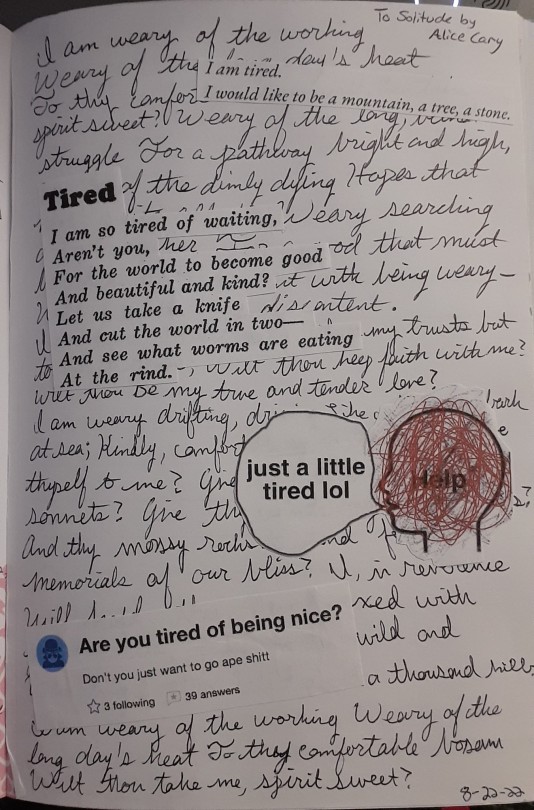 To Solitude by
Alice Cary
I am weary of the working
Weary of the day's heat
I am tired.
To thy comfor
I would like to be a mountain, a tree, a stone.
spirit sweet? Weary of the long,
struggle For a pathway bright and high,
Tired of the dimly dying Hopes that
I am so tired of waiting, Weary searching
Aren't you, her
For the world to become good od that must
And beautiful and kind? it with being weary—
Let us take a knife discontent.
And cut the world in two—
And see what worms are eating my trusts but
At the rind. Wilt thou keep faith with me?
wilt thou be my true and tender love?
I am weary drifting, dri like a bark
at sea; Kindly, comfort
thyself to me? Give
just a little
tired lol
Help
sonnets? Give th s?
And thy mossy rocks nd
memorials of our bliss? I, in reverence
Will xed with
Are you tired of being nice?
wild and
Don't you just want to go ape shitt
a thousand hills
3 following 39 answers
I am weary of the working Weary of the
long day's heat To thy comfortable bosom
Wilt thou take me, spirit sweet?
8-22-22